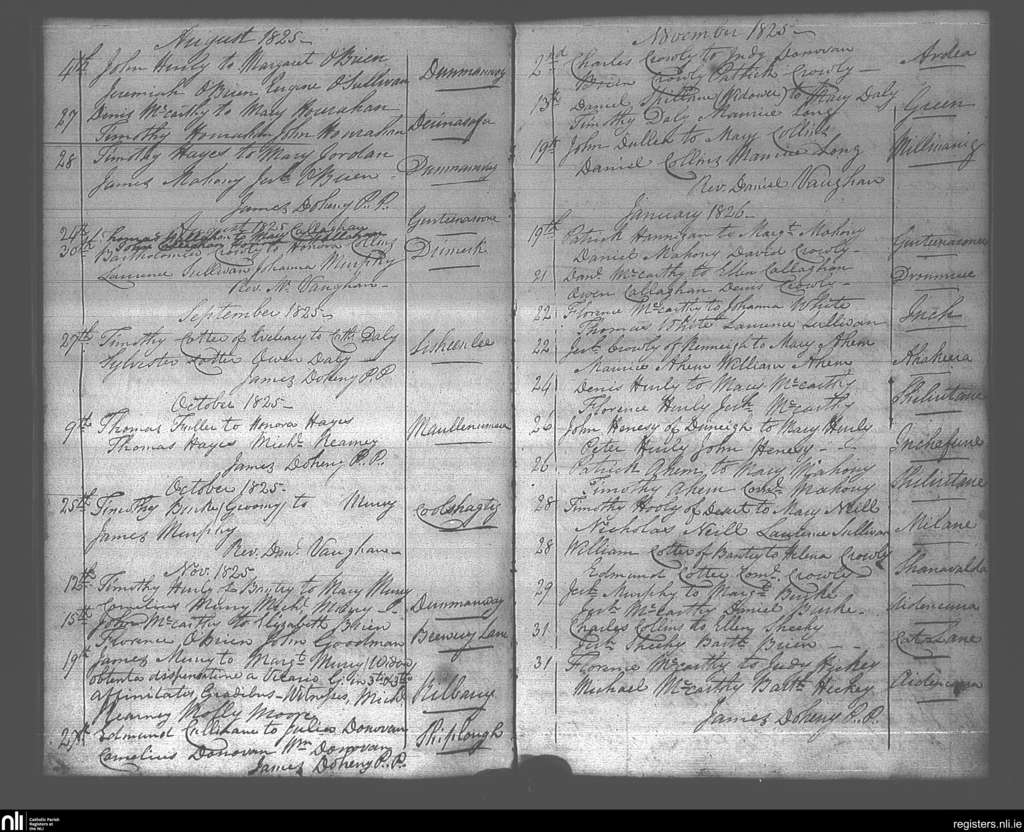 August 1825
4th John Hurly to Margaret O'Brien
Jeremiah O'Brien Eugene O'Sullivan
Dunmanway
27 Denis McCarthy to Mary Hourahan
Timothy Hourahan John Hourahan
28 Timothy Hayes to Mary Jordan
James Mahony Jerh O'Brien
Dunmanway
James Doheny P.P.
August 1825
24th Thomas to Mary Callaghan
John Callaghan
Gurteenasowe
30th Bartholomew to Honora Collins
Laurence Sullivan Johanna Murphy
Rev. Mr. Vaughan
September 1825
27th Timothy Cotter of to Cath. Daly
Sylvester Cotter Owen Daly
Lisheenlea
James Doheny P.P.
October 1825
9th Thomas Fuller to Honora Hayes
Thomas Hayes Michl. Kearney
James Doheny P.P.
October 1825
25th Timothy Burke to Mury
James Murphy
Coolshagtig
Rev. Danl. Vaughan
Nov. 1825
12th Timothy Hurly of Bantry to Mary Murry
Cornelius Murry Michl.
Dunmanway
15th John McCarthy to Elizabeth Brien
Florence O'Brien John Goodman
Brewery Lane
19th James Mury to Margt. Mury (Widow)
obtenta dispensatione a Vicario G. in 3tio & 3tio
affinitatis Gradibus - Witnesses, Michl.
Kearney Molly Moore
Kilbarry
29th Edmund Callihane to Julia Donovan
Cornelius Donovan Wm. Donovan
Shiplough
James Doheny P.P.
November 1825
2nd Charles Crowly to Judy Donovan
Brien Crowly Patrick Crowly
Ardea
13th Daniel Spillane (Widower) to Mary Daly
Timothy Daly Maurice Long
Green
19th John Dullea to Mary Collins
Daniel Collins Maurice Long
Millinanig
Rev. Daniel Vaughan
January 1826
19th Patrick Hannigan to Margt. Mahony
Daniel Mahony David Crowly
Gurteenasowe
21 Danl. McCarthy to Ellen Callaghan
Owen Callaghan Denis Crowly
22 Florence McCarthy to Johanna White
Thomas White Laurence Sullivan
Inch
22 Jerh. Crowly of Kenneigh to Mary Ahern
Maurice Ahern William Ahern
Ahakeera
24 Denis Hurly to Mary McCarthy
Florence Hurly Jerh. McCarthy
Shilirtane
26 John Henesy of to Mary Hurly
Peter Hurly John Henesy
Inchafune
26 Patrick Ahern to Mary Mahony
Timothy Ahern Corns. Mahony
Shilirtane
28 Timothy Hooly of Desert to Mary Neill
Nicholas Neill Laurence Sullivan
Milane
28 William Cotter of Bantry to Helena Crowly
Edmund Cotter Corns. Crowly
Shanavalda
29 Jerh. Murphy to Margt. Burke
Jerh. McCarthy Daniel Burke
31 Charles Collins to Ellen Sheehy
Jerh. Sheehy Barth. Brien
31 Florence McCarthy to Judy Hickey
Michael McCarthy Barth. Hickey
James Doheny P.P.
nli
Catholic Parish
Registers at
the NLI
registers.nli.ie